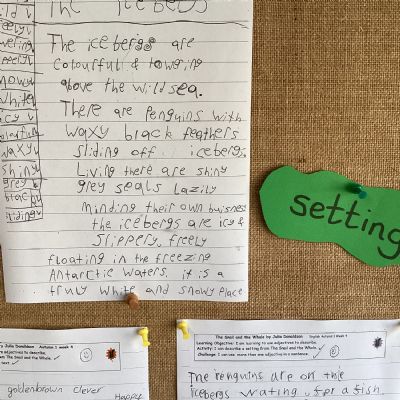 The Icebergs
The icebergs are
colourfull & towering
above the wild sea.
There are Penguins with
waxy black feathers
sliding off icebergs.
Living there are shiny
grey seals Lazily
minding their own buisnes
the icebergs are icy &
Slippery, freely
floating in the freezing
Antarctic waters. it is a
truly white and snowy place
wild
snowy
white
icy
waxy
shiny
grey
black
setting
by Julia Donaldson Autumn 1 week 4
adjectives to describe.
goldenbrown clever
Happy
The Snail and the Whale by Julia Donaldson English Autumn 1 Week 4
Learning Objective: I am learning to use adjectives to describe.
Activity: I can describe a setting from The Snail and the Whale.
Challenge: I can use more than one adjective in a sentence.
The Penguins are on the
icebergs wating for a fish.